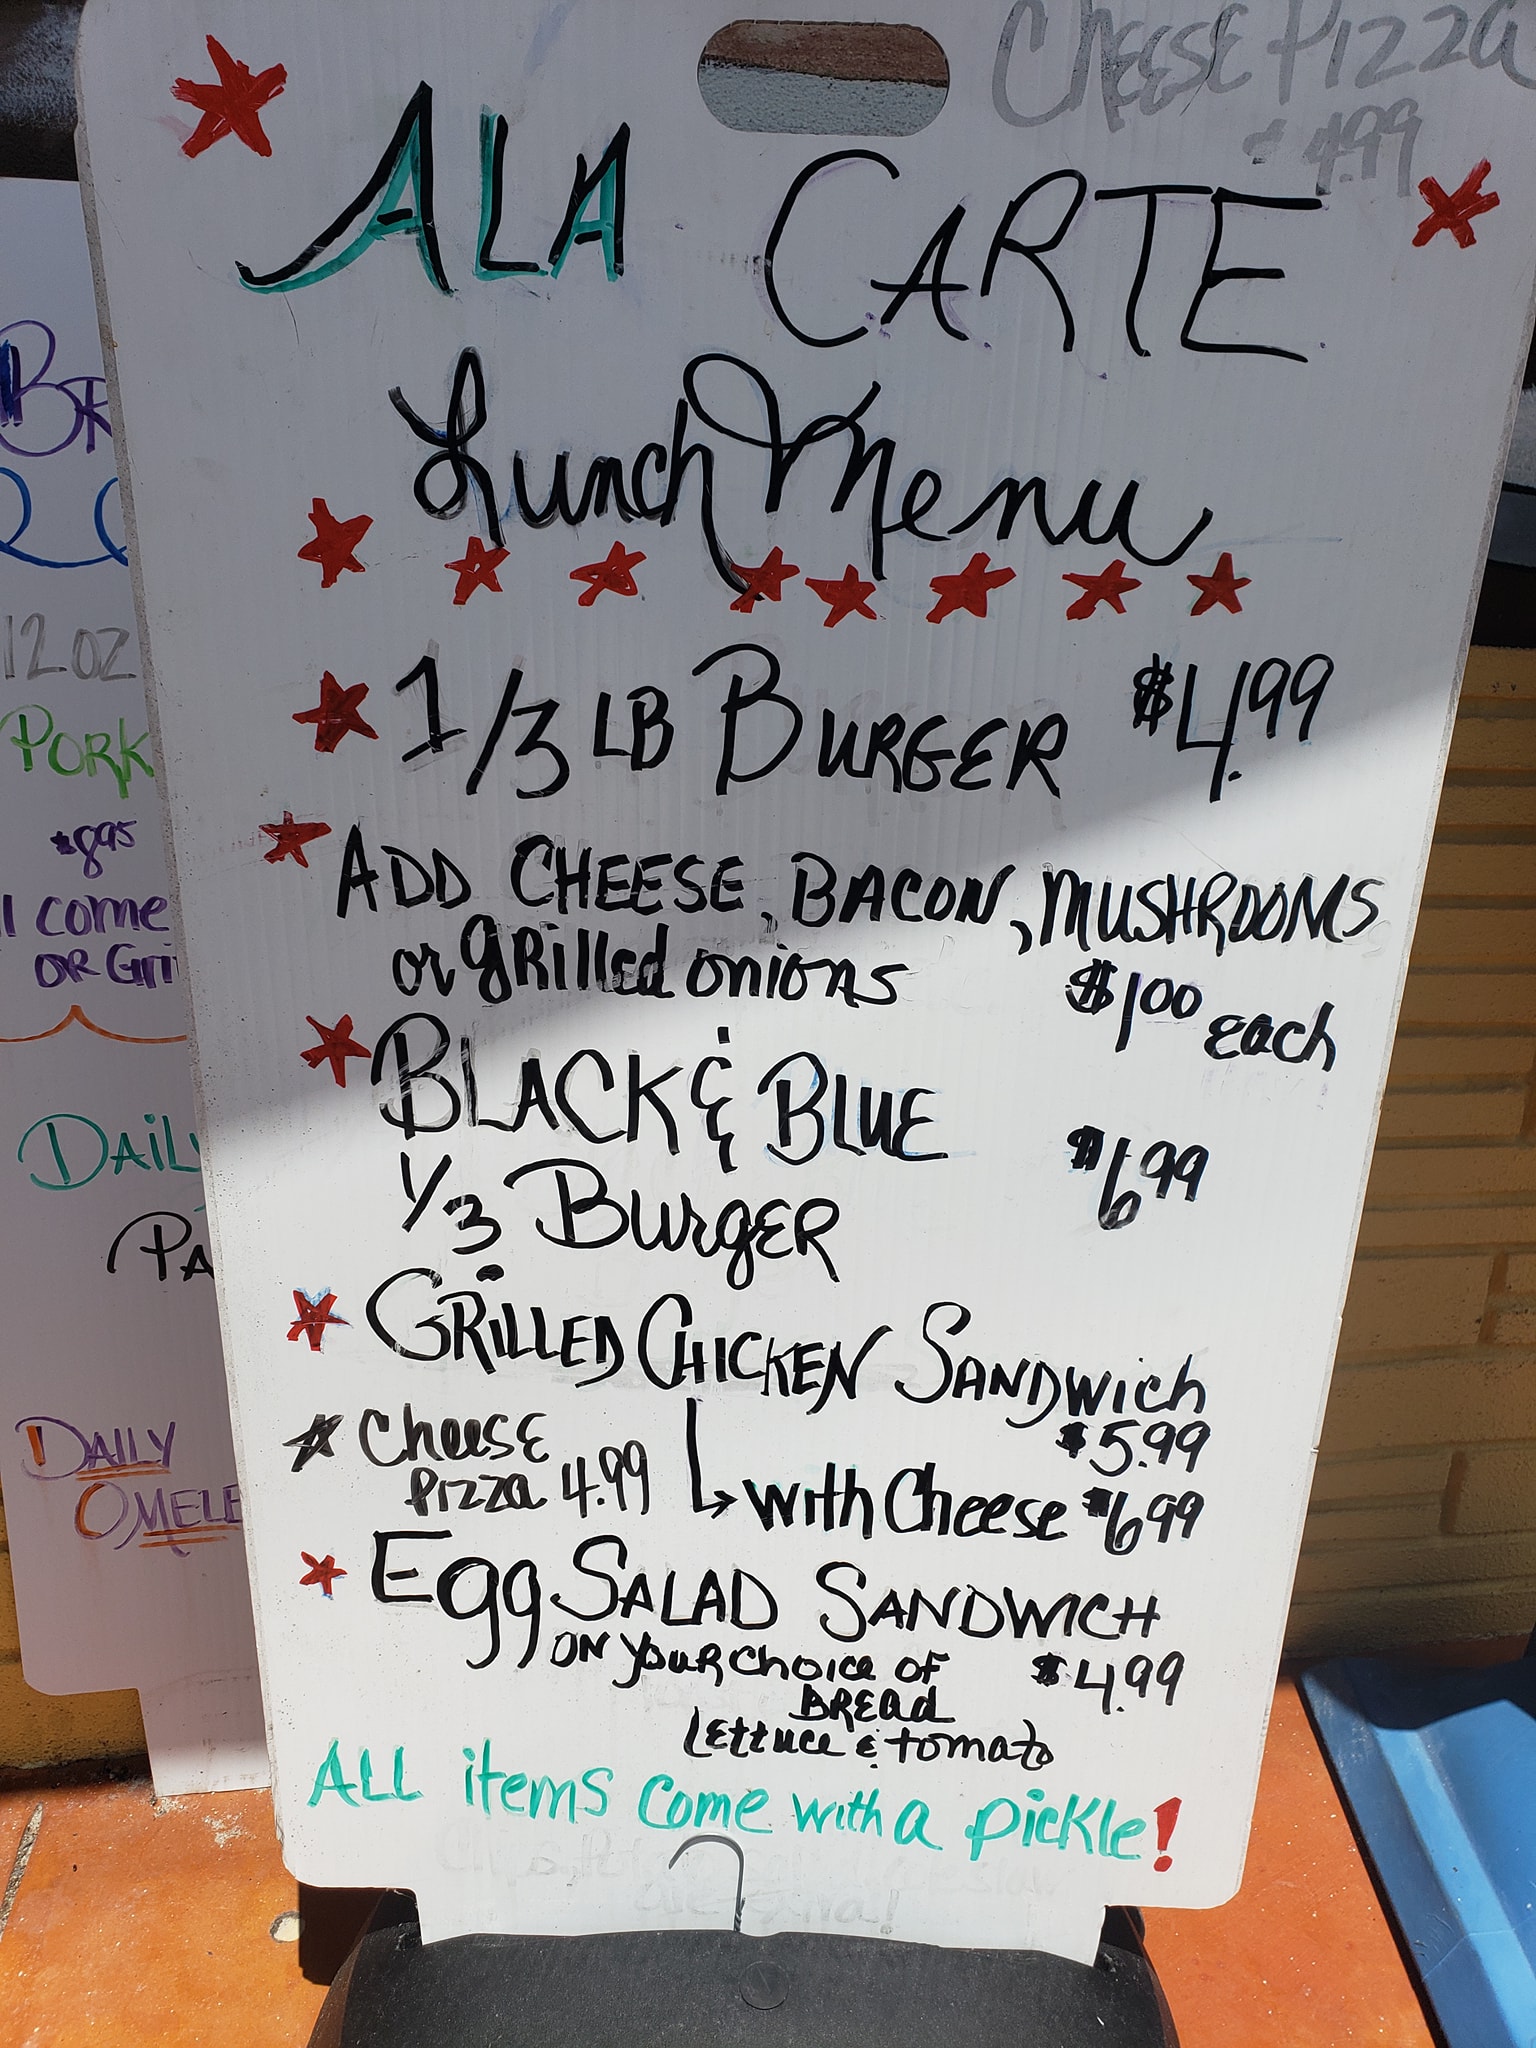 Cheese Pizza
$4.99
ALA CARTE
Lunch Menu
1/3 LB BURGER $4.99
ADD CHEESE, BACON, MUSHROOMS
or grilled onions $1.00 each
BLACK & BLUE
1/3 BURGER $6.99
GRILLED CHICKEN SANDWich
$5.99
Cheese
Pizza 4.99
with Cheese $6.99
Egg SALAD SANDWICH
ON YOUR Choice OF $4.99
BREAD
Lettuce & tomato
ALL items come with a pickle!
12 OZ
PORK
$8.95
come
OR
DAILY
DAILY